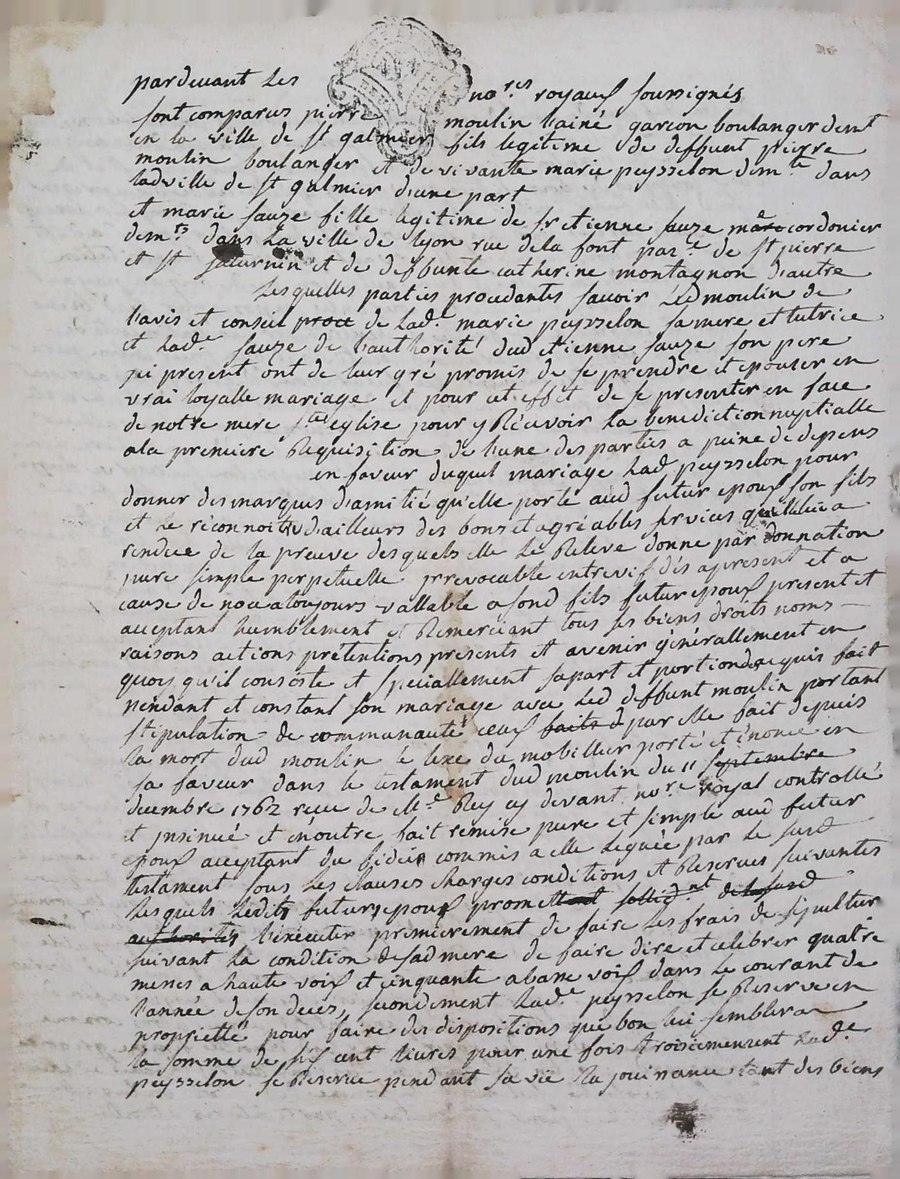 pardevant les no.res royaux soussignés
sont comparus pierre moulin l'ainé garcon boulanger demt
en la ville de st galmier fils legitime de deffunt pierre
moulin boulanger et de vivante marie peysselon demte dans
lad ville de st galmier d'une part
et marie sauze fille legitime de sr etienne sauze me cordonier
demrs dans la ville de lyon rue de la font parse de st pierre
et st saturnin et de deffunte catherine montagnon d'autre
Lesquelles parties procedantes savoir led moulin de
l'avis et conseil proce de lade marie peysselon sa mere et tutrice
et lade sauze de l'authorité dud etienne sauze son pere
ici present ont de leur gré promis de se prendre et epouser en
vrai loyalle mariage et pour cet effet de se presenter en face
de notre mere ste eglise pour y Recevoir la benediction nuptialle
a la premiere Requisition de l'une des parties a peine de depens
en faveur duquel mariage lad peysselon pour
donner des marques d'amitié qu'elle porte aud futur epoux son fils
et le reconnoitre d'ailleurs des bons et agréables services qu'il lui a
rendue de la preuve desquels elle le Releve donne par donnation
pure simple perpetuelle irrevocable entre vif dès apresent et a
cause de noce a toujours vallable a sond fils futur epoux present et
acceptant humblement et Remerciant tous ses biens droits noms
raisons actions prétentions presents et avenir générallement en
quoy qu'il consiste et speciallement sa part et portion d'acquis fait
pendant et constant son mariage avec led deffunt moulin portant
stipulation de communauté ceux faits d par elle fait depuis
la mort dud moulin le lexe du mobillier porté et enoncé en
sa faveur dans le testament dud moulin du 11 septembre
decembre 1762 recu de Me Rey cy devant nore royal controllé
et insinué et en outre fait remise pure et simple aud futur
epoux acceptant du fideicommis a elle leguée par le susd
testament sous les clauses charges conditions et Reserves suivantes
Lesquels ledits futurs epoux promettent sollidnt del susd
authorités l'executer premierement de faire les frais de sepultur
suivant la condition de sad mere de faire dire et celebrer quatre
messes a haute voix et cinquante a basse voix dans le courant de
l'année de son deces, secondement lade peysselon se Reserve en
proprietté pour faire des dispositions que bon lui semblera
la somme de six cent livres pour une fois troisiemement lade
peysselon se Reserve pendant sa vie la jouissance tant des biens